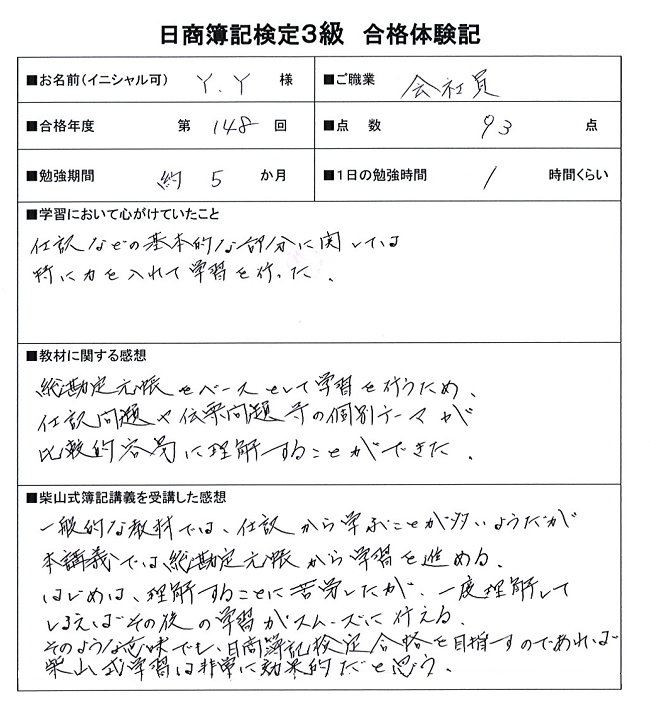 日商簿記検定3級 合格体験記
■お名前(イニシャル可) Y.Y 様 ■ご職業 会社員
■合格年度 第 148 回 ■点 数 93 点
■勉強期間 約 5 か月 ■1日の勉強時間 1 時間くらい
■学習において心がけていたこと
仕訳などの基本的な部分に関しては
特に力を入れて学習を行った.
■教材に関する感想
総勘定元帳をベースとして学習を行うため、
仕訳問題や伝票問題等の個別テーマが
比較的容易に理解することができた.
■柴山式簿記講義を受講した感想
一般的な教材では、仕訳から学ぶことが多いようだが
本講義では総勘定元帳から学習を進める.
はじめは、理解することに苦労したが、一度理解して
しまえばその後の学習がスムーズに行える.
そのような意味でも、日商簿記検定合格を目指すのであれば
柴山式学習は非常に効果的だと思う.